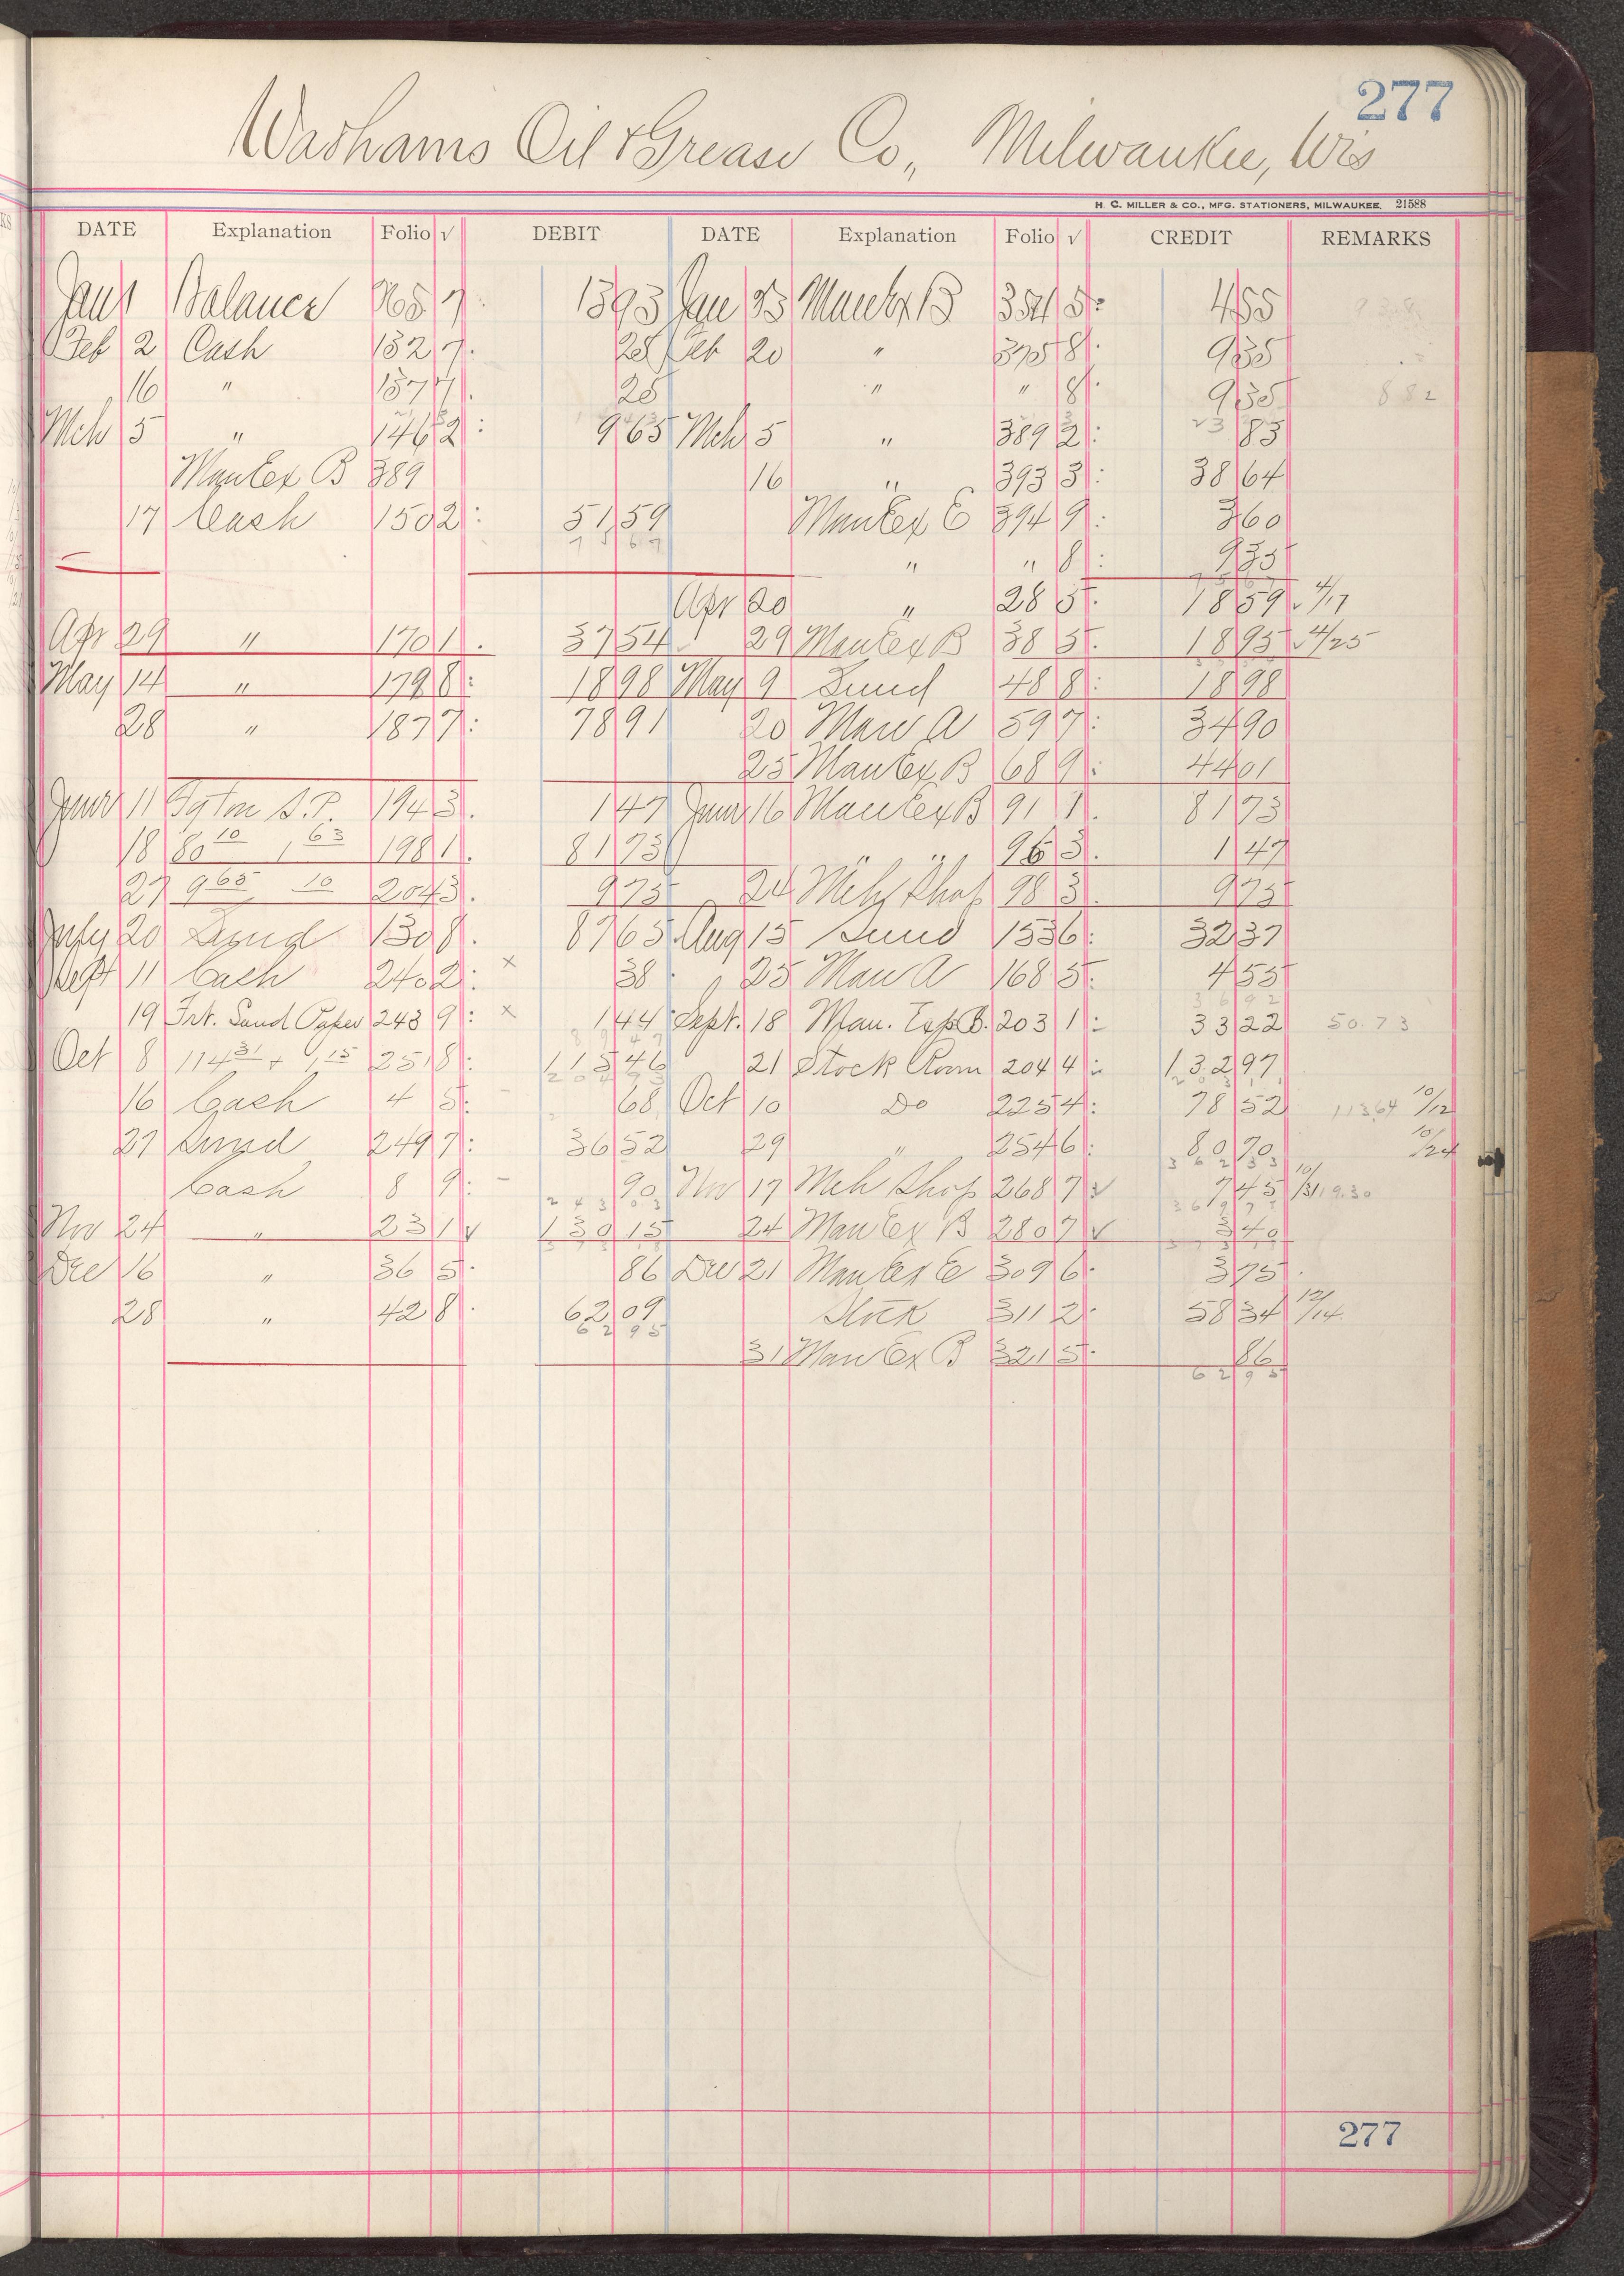 277
Washams Oil & Grease Co., Milwaukee, Wis
H. C. MILLER & CO., MFG. STATIONERS, MILWAUKEE 21588
DATE Explanation Folio √ DEBIT DATE Explanation Folio √ CREDIT REMARKS
Jan 1 Balance 7 13 93 Jan Man Ex B 354 5 4 55
Feb 2 Cash 132 7 28 Feb 20 " 375 8 9 35
16 " 137 7 28 " " 8 9 35 882
Mch 5 " 146 2 9 65 Mch 5 " 389 2 83
Man Ex B 389 16 " 393 3 38 64
17 Cash 150 2 51 59 Man Ex E 394 9 3 60
" " 8 9 35
Apr 20 " 28 5 18 59 4/17
Apr 29 " 170 1 37 54 29 Man Ex B 38 5 18 95 4/25
May 14 " 179 8 18 98 May 9 Sund 48 8 18 98
28 " 187 7 78 91 20 Man A 59 7 34 90
25 Man Ex B 68 9 44 01
June 11 194 3 1 47 June 16 Man Ex B 91 1 81 73
18 80 10 1 63 198 1 81 73 " " 96 3 1 47
27 9 65 10 204 3 9 75 24 Mch Shop 98 3 9 75
July 20 Sund 130 8 87 65 Aug 15 Sund 153 6 32 37
Sept 11 Cash 240 2 × 38 25 Man A 168 5 4 55
19 Frt. Sand Paper 243 9 × 1 44 Sept. 18 Man. Exp B. 203 1 33 22 50.73
Oct 8 114 31 + 1 15 251 8 115 46 21 Stock Room 204 4 132 97
16 Cash 4 5 68 Oct 10 Do 225 4 78 52 113 64 10/12
27 Sund 249 7 36 52 29 " 254 6 80 70 10/24
Cash 8 9 90 Nov 17 Mch Shop 268 7 √ 7 45 10/31 19.30
Nov 24 " 23 1 √ 130 15 24 Man Ex B 280 7 √ 3 40
Dec 16 " 36 5 86 Dec 21 Man Ex E 309 6 3 75
28 " 42 8 62 09 Stock 311 2 58 34 12/14
62 95 31 Man Ex B 321 5 86
62 95
277